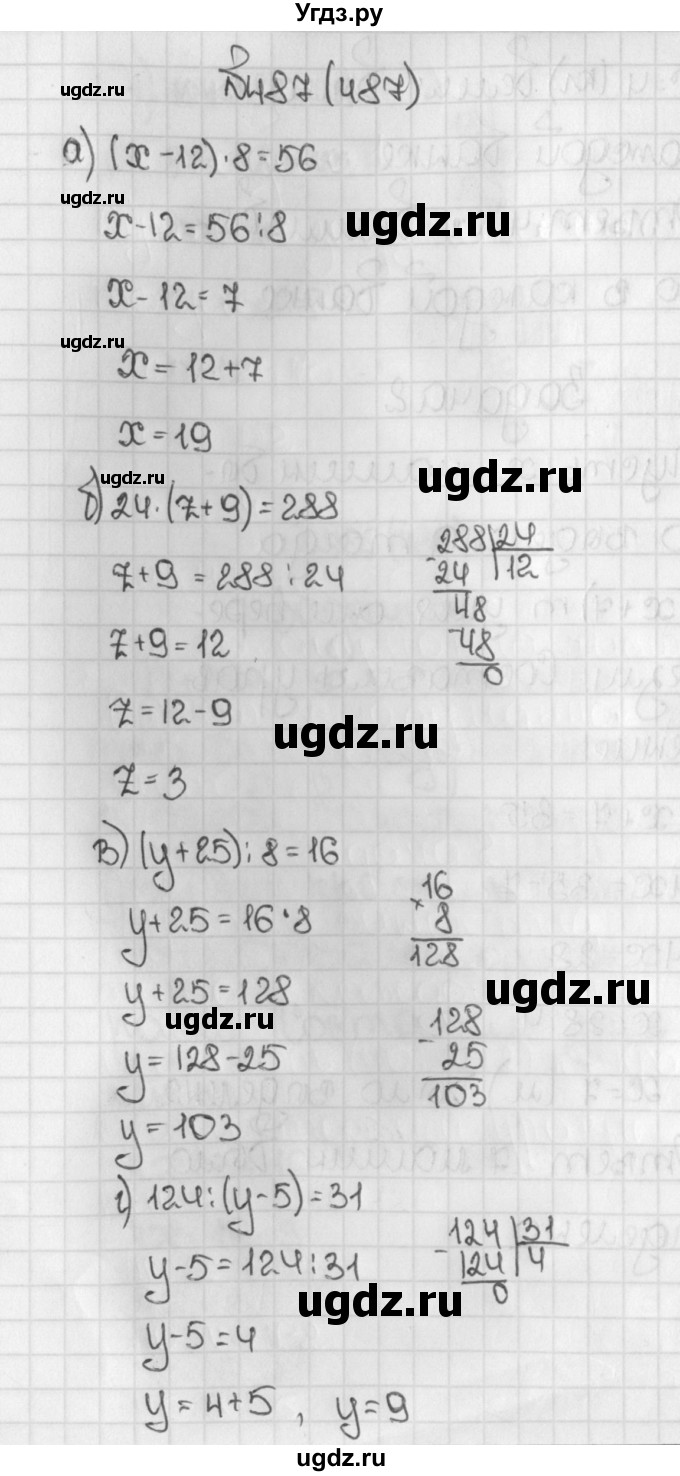 Угдз.ру
ugdz.ru
№487 (487)
а) (x - 12) · 8 = 56
ugdz.ru
x - 12 = 56 : 8
ugdz.ru
x - 12 = 7
ugdz.ru
x = 12 + 7
x = 19
ugdz.ru
ugdz.ru
б) 24 · (z + 9) = 288
288 24
z + 9 = 288 : 24
- 24 12
48
z + 9 = 12
- 48
0
z = 12 - 9
ugdz.ru
z = 3
в) (y + 25) : 8 = 16
16
y + 25 = 16 · 8
× 8
128
y + 25 = 128
ugdz.ru
ugdz.ru
128
y = 128 - 25
- 25
103
y = 103
г) 124 : (y - 5) = 31
124 31
y - 5 = 124 : 31
- 124 4
0
ugdz.ru
y - 5 = 4
y = 4 + 5 , y = 9
ugdz.ru